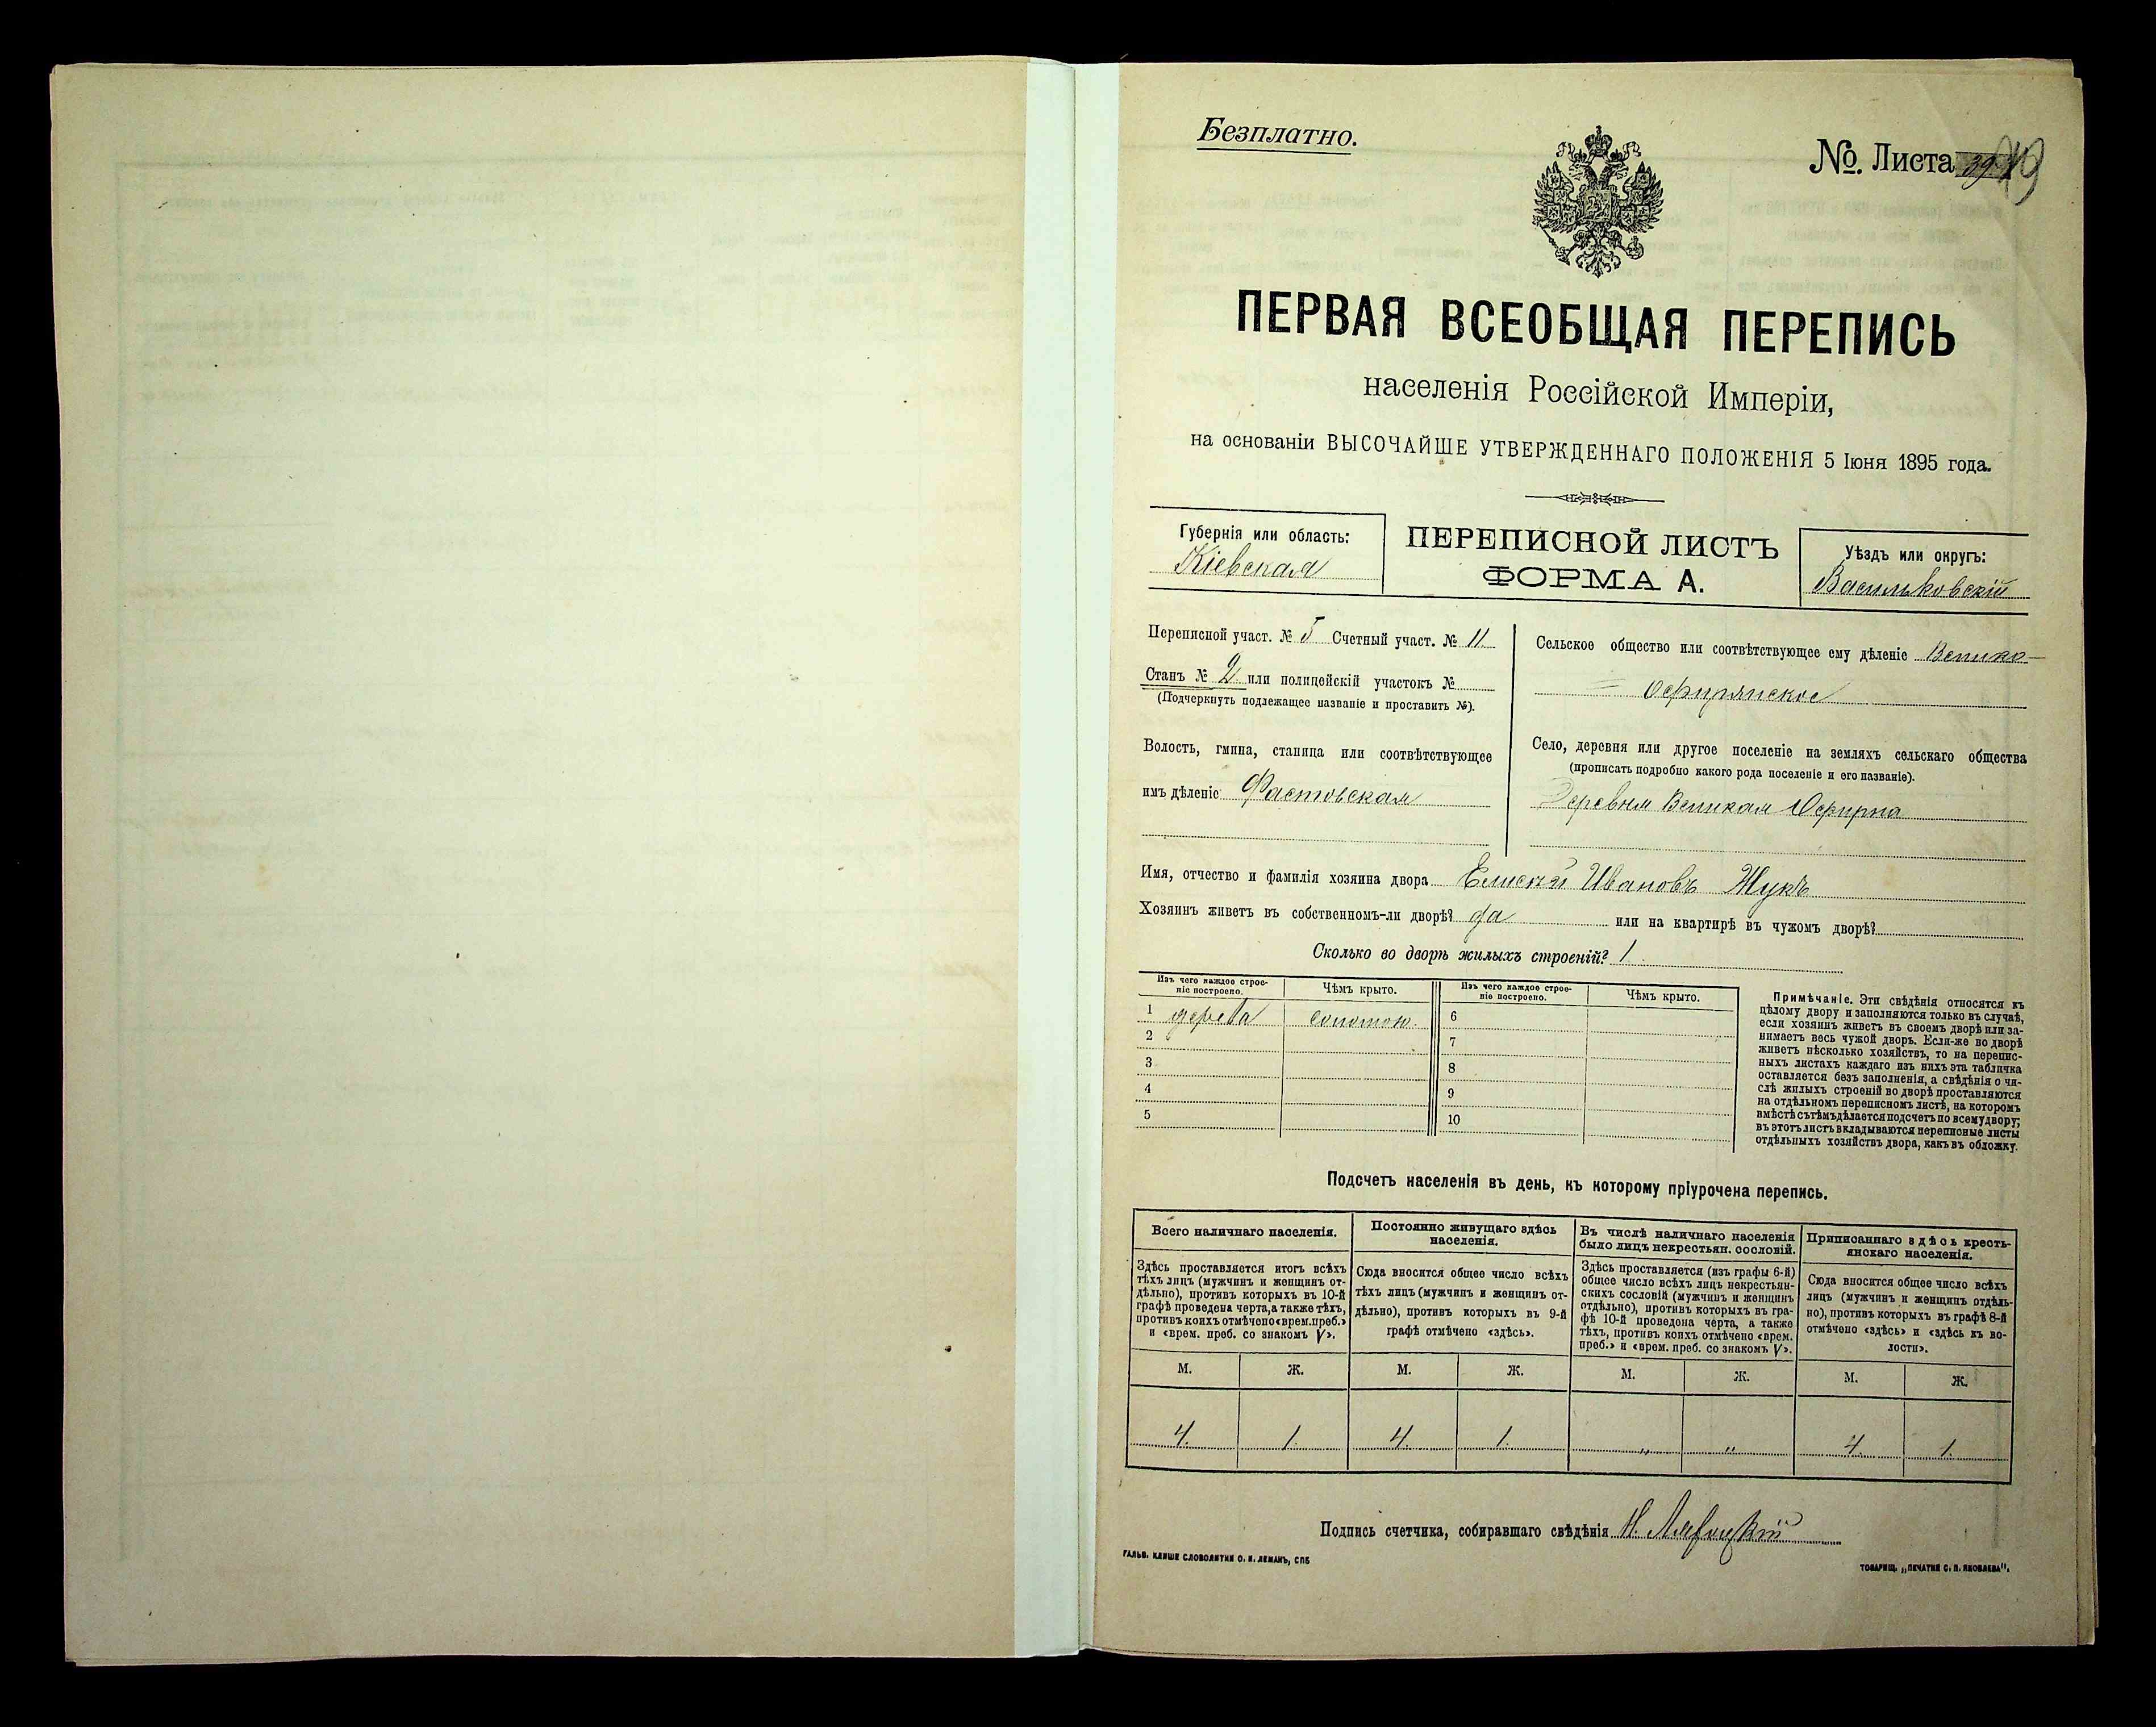 Безплатно.
№. Листа 39
ПЕРВАЯ ВСЕОБЩАЯ ПЕРЕПИСЬ
населенія Россійской Имперіи,
на основаніи ВЫСОЧАЙШЕ УТВЕРЖДЕННАГО ПОЛОЖЕНІЯ 5 Іюня 1895 года.
Губернія или область:
Кіевская
ПЕРЕПИСНОЙ ЛИСТЪ
ФОРМА А.
Уѣздъ или округъ:
Васильковскій
Переписной участ. № 5 Счетный участ. № 11
Станъ № 2 или полицейскій участокъ №
(Подчеркнуть подлежащее названіе и проставить №).
Волость, гмина, станица или соотвѣтствующее
имъ дѣленіе Фастовская
Сельское общество или соотвѣтствующее ему дѣленіе Велико-
Офирянское
Село, деревня или другое поселеніе на земляхъ сельскаго общества
(прописать подробно какого рода поселеніе и его названіе).
Деревня Великая Офирна
Имя, отчество и фамилія хозяина двора Ивановъ Жукъ
Хозяинъ живетъ въ собственномъ-ли дворѣ? да или на квартирѣ въ чужомъ дворѣ?
Сколько во дворѣ жилыхъ строеній? 1
Изъ чего каждое строе-
ніе построено.
Чѣмъ крыто.
Изъ чего каждое строе-
ніе построено.
Чѣмъ крыто.
1 дерева соломою. 6
2 7
3 8
4 9
5 10
Примѣчаніе. Эти свѣдѣнія относятся къ
цѣлому двору и заполняются только въ случаѣ,
если хозяинъ живетъ въ своемъ дворѣ или за-
нимаетъ весь чужой дворъ. Если-же во дворѣ
живетъ нѣсколько хозяйствъ, то на перепис-
ныхъ листахъ каждаго изъ нихъ эта табличка
оставляется безъ заполненія, а свѣдѣнія о чи-
слѣ жилыхъ строеній во дворѣ проставляются
на отдѣльномъ переписномъ листѣ, на которомъ
вмѣстѣ съ тѣмъ дѣлается подсчетъ по всему двору;
въ этотъ листъ вкладываются переписные листы
отдѣльныхъ хозяйствъ двора, какъ въ обложку.
Подсчетъ населенія въ день, къ которому пріурочена перепись.
Всего наличнаго населенія.
Здѣсь проставляется итогъ всѣхъ
тѣхъ лицъ (мужчинъ и женщинъ от-
дѣльно), противъ которыхъ въ 10-й
графѣ проведена черта, а также тѣхъ,
противъ коихъ отмѣчено «врем. преб.»
и «врем. преб. со знакомъ V».
Постоянно живущаго здѣсь
населенія.
Сюда вносится общее число всѣхъ
тѣхъ лицъ (мужчинъ и женщинъ от-
дѣльно), противъ которыхъ въ 9-й
графѣ отмѣчено «здѣсь».
Въ числѣ наличнаго населенія
было лицъ некрестьян. сословій.
Здѣсь проставляется (изъ графы 6-й)
общее число всѣхъ лицъ некрестьян-
скихъ сословій (мужчинъ и женщинъ
отдѣльно), противъ которыхъ въ гра-
фѣ 10-й проведена черта, а также
тѣхъ, противъ коихъ отмѣчено «врем.
преб.» и «врем. преб. со знакомъ V».
Приписаннаго здѣсь кресть-
янскаго населенія.
Сюда вносится общее число всѣхъ
лицъ (мужчинъ и женщинъ отдѣль-
но), противъ которыхъ въ графѣ 8-й
отмѣчено «здѣсь» и «здѣсь къ во-
лости».
М. Ж. М. Ж. М. Ж. М. Ж.
4. 1. 4. 1. „ „ 4. 1.
Подпись счетчика, собиравшаго свѣдѣнія
ГАЛЬВ. КЛИШЕ СЛОВОЛИТНИ О. И. ЛЕМАНЪ, СПБ
ТОВАРИЩ. „ПЕЧАТНЯ С. П. ЯКОВЛЕВА".